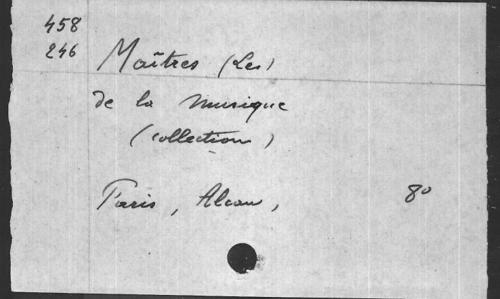 458
246
Maîtres (Les)
de la musique
(collection)
Paris, Alcan, 8º